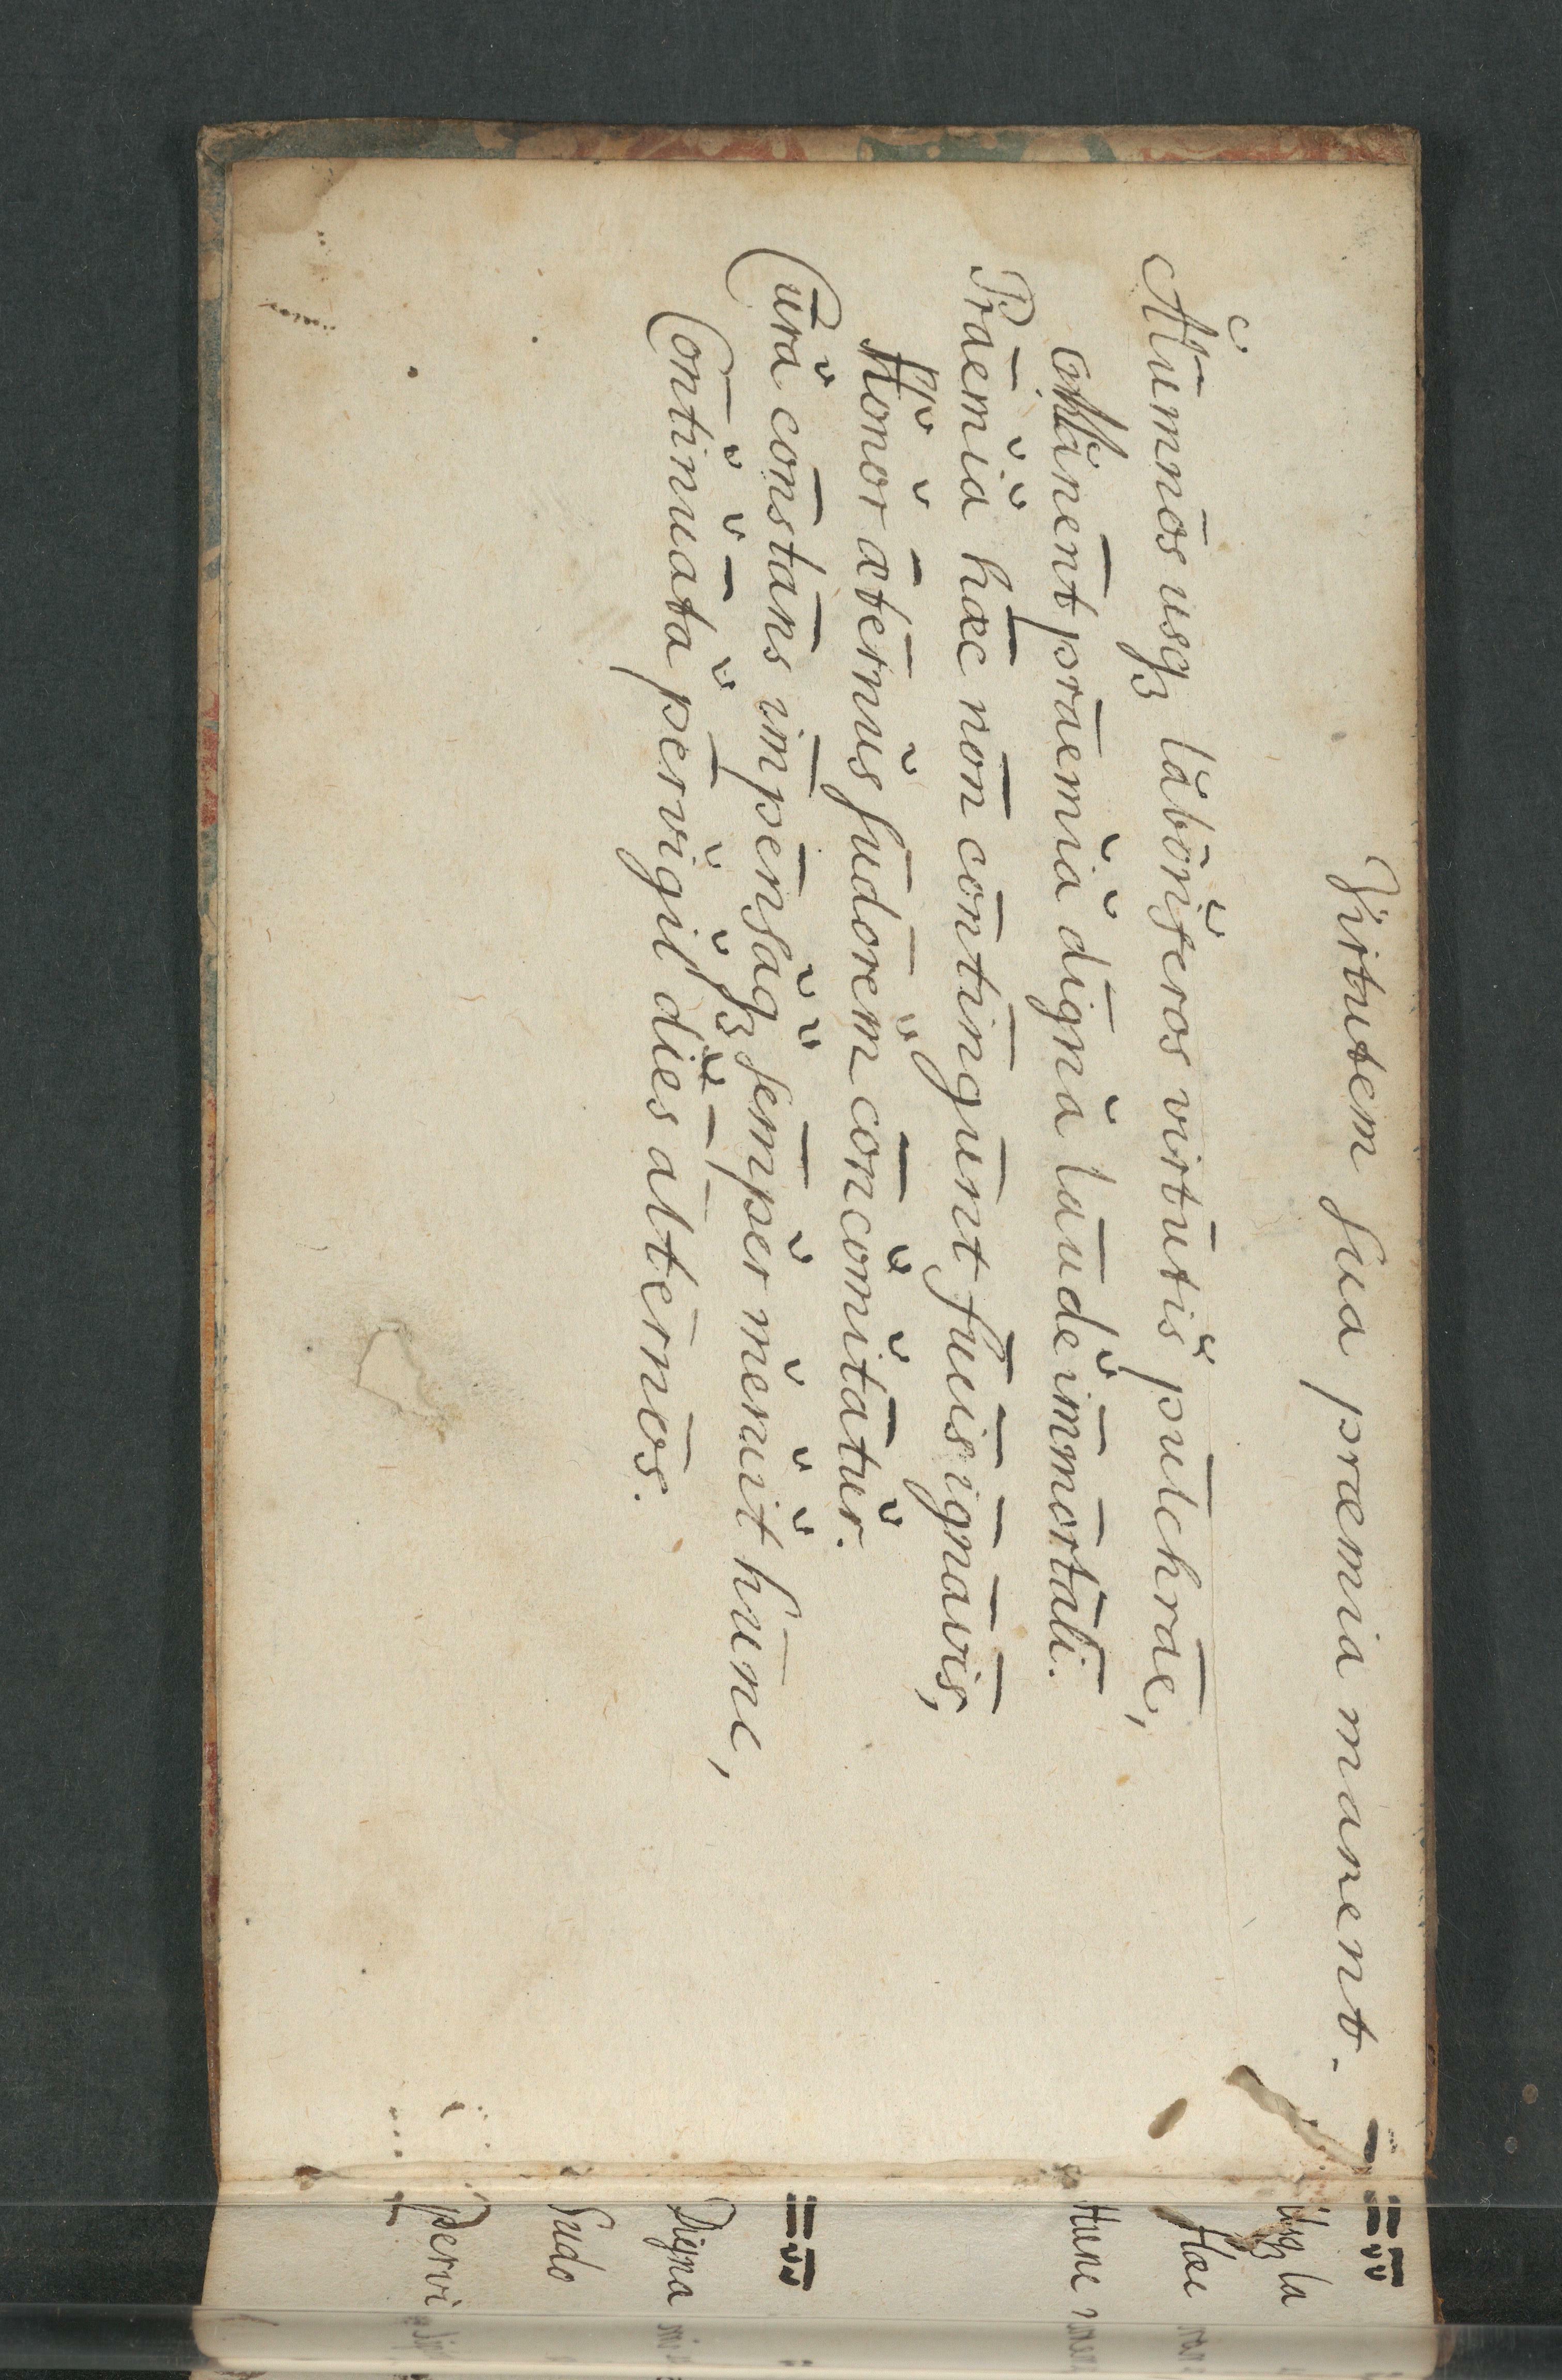 Virtutem sua præmia manent.
Alumnos usqꝫ laboriferos virtutis pulchrae,
Manent praemia digna laude immortali.
Praemia hæc non contingunt fuuis ignavis,
Honor æternus sudorem concomitatur.
Cura constans impensaqꝫ semper meruit hunc,
Continuata pervigil dies alternos.
Usqꝫ la
Hæc
Hunc
Digna
Sudo
Pervi